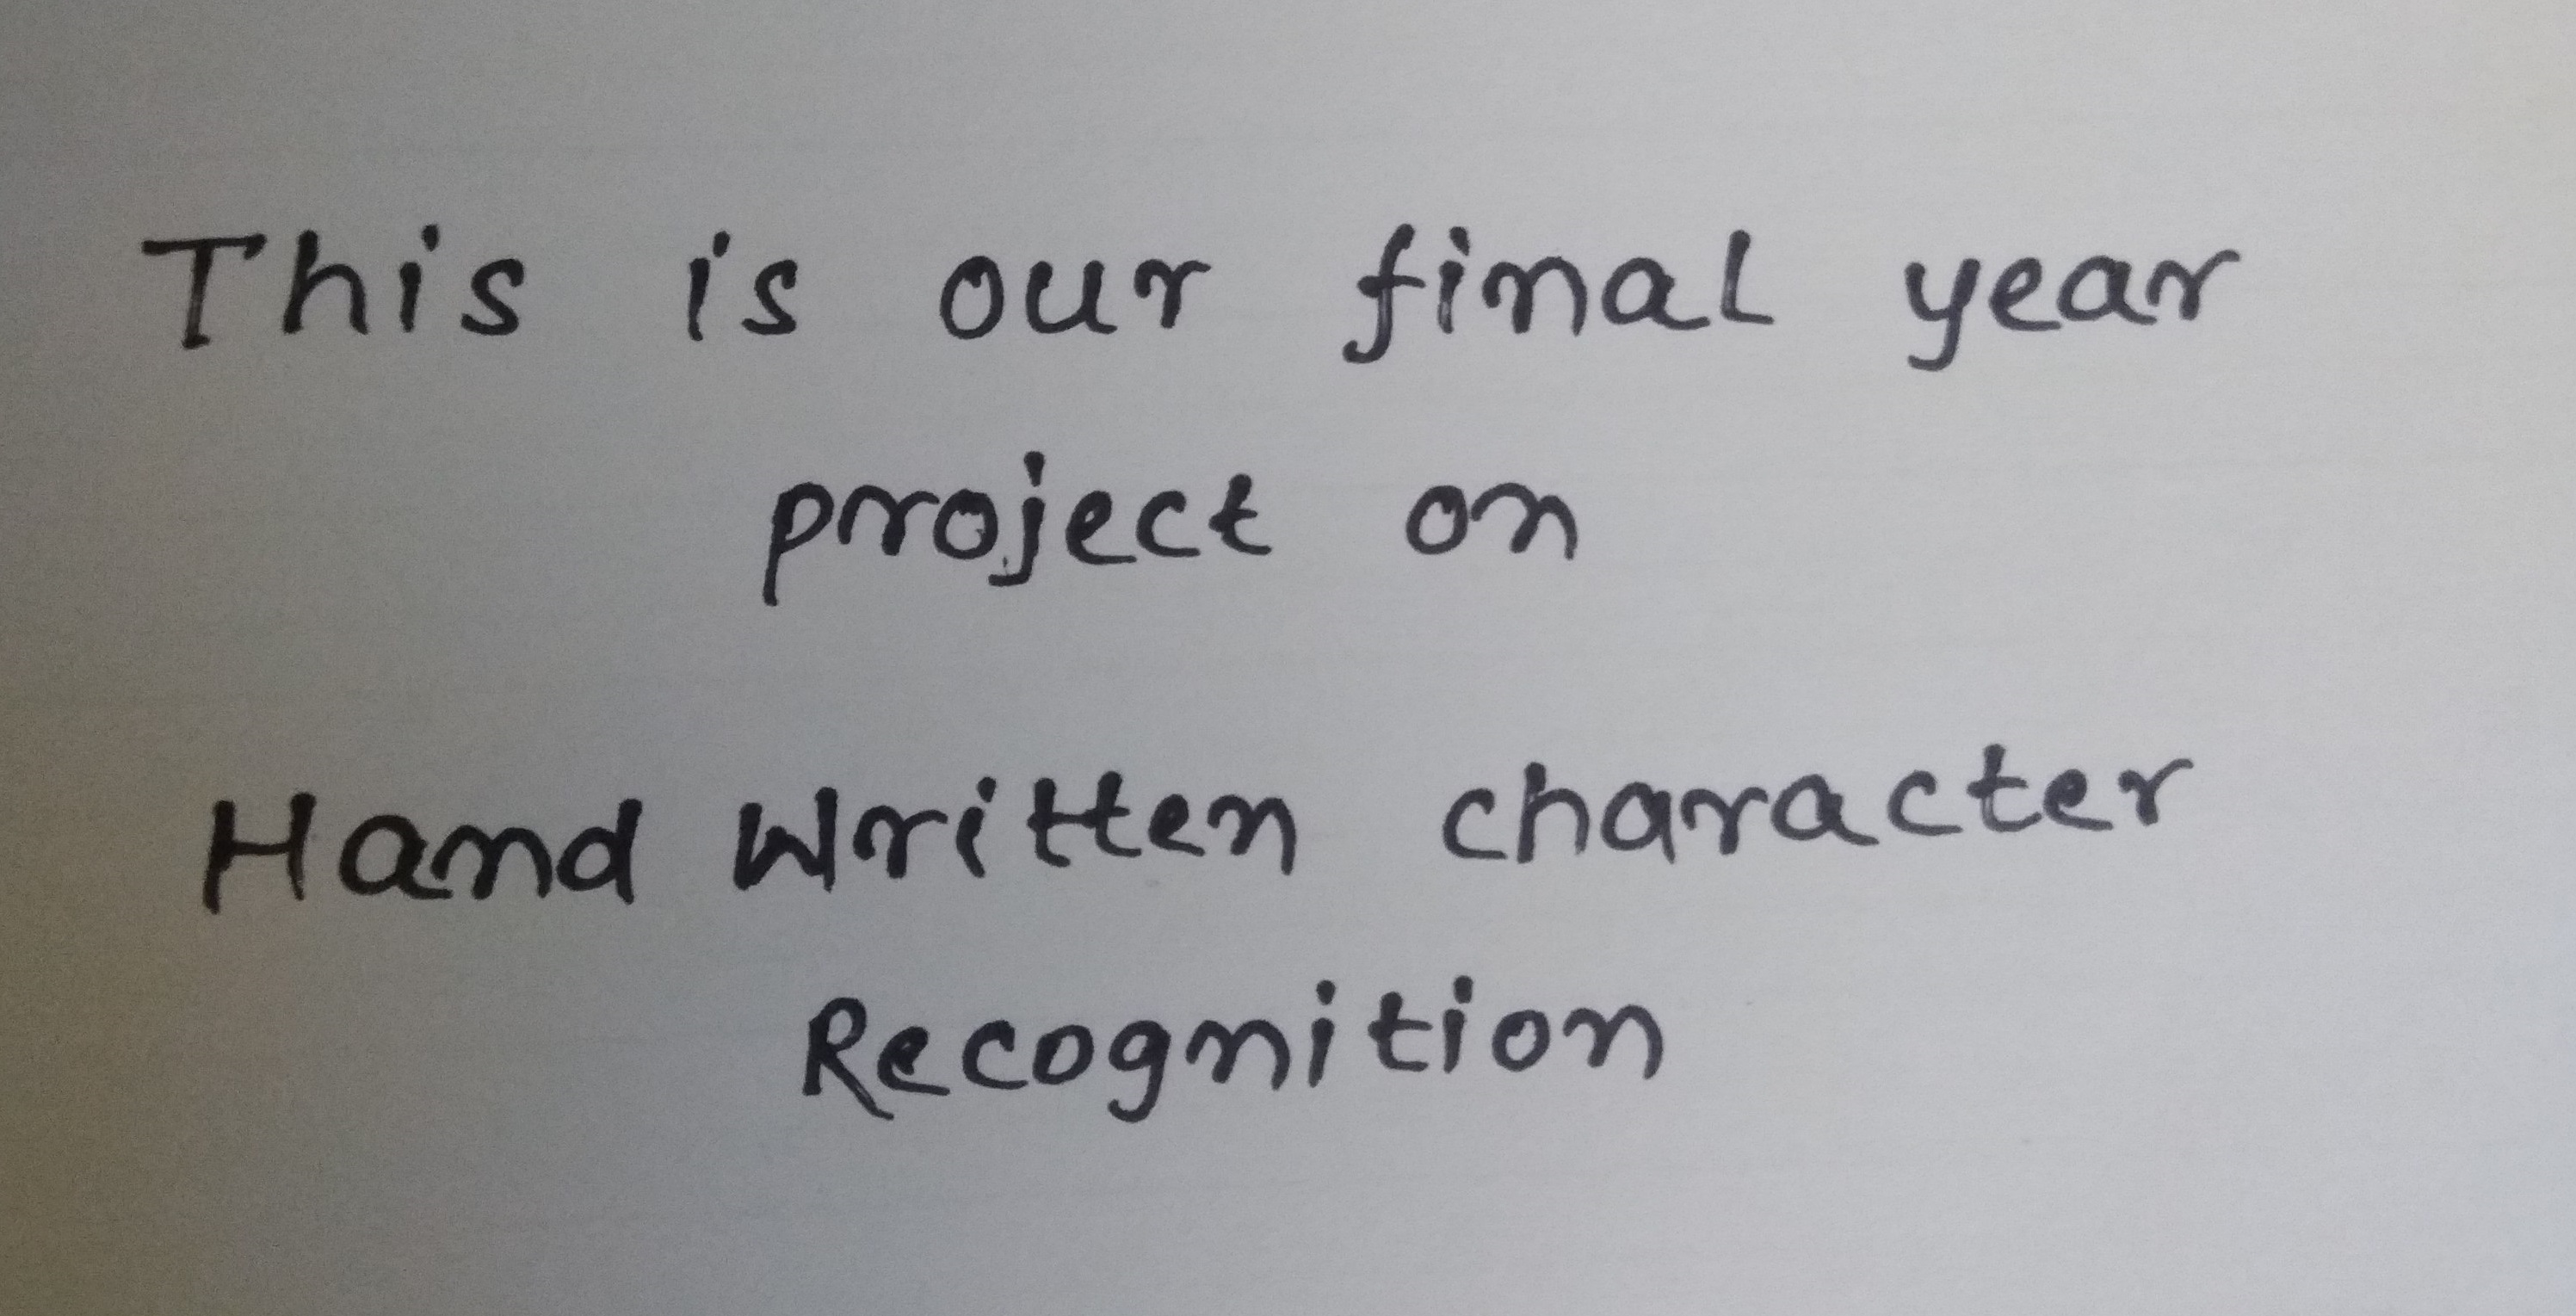 This is our final year
project on
Hand Written character
Recognition